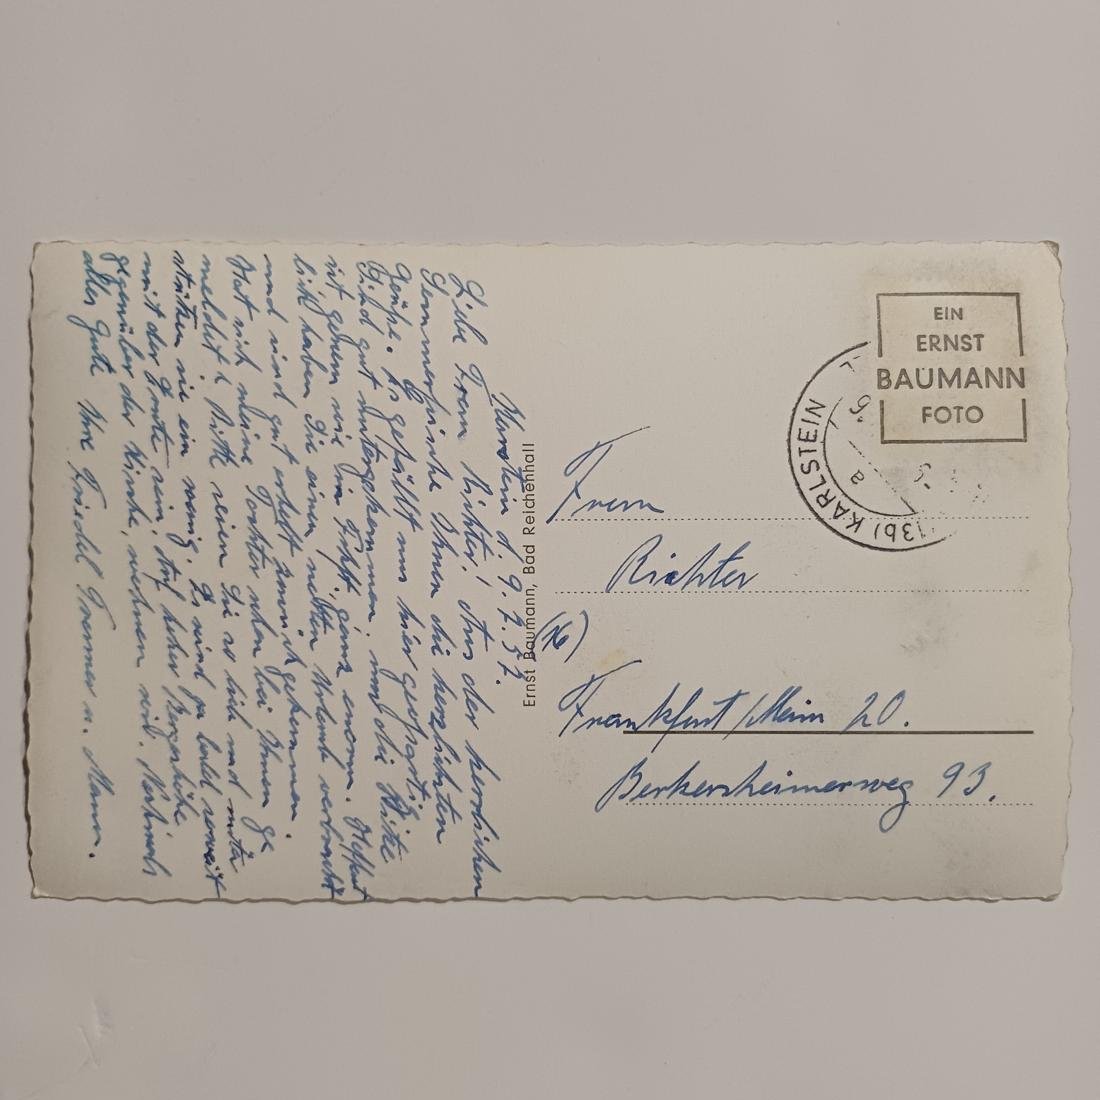 Karlstein d. 9.7.57.
Liebe Frau Richter! Aus der herrlichen
Sommerfrische Ihnen die herzlichsten
Grüße. Es gefällt uns hier großartig.
Sind gut untergekommen, nur die Hitze
ist genau wie in Frkft. ganz enorm. Hoffent
lich haben Sie einen netten Urlaub verbracht
und sind gut erholt zurückgekommen.
Hat sich meine Tochter schon bei Ihnen ge
meldet? Bitte seien Sie so lieb und
sie ein wenig. Es sind ja bald soweit
mit der Torte sein, auf hoher Bergeshöhe
gegenüber der Kirche, wohnen wir. Nochmals
alles Gute Ihre Friedel u. Mann.
Ernst Baumann, Bad Reichenhall
EIN
ERNST
BAUMANN
FOTO
(13b) KARLSTEIN
a
Frau
Richter
(16)
Frankfurt/Main 20.
Berkersheimerweg 93.